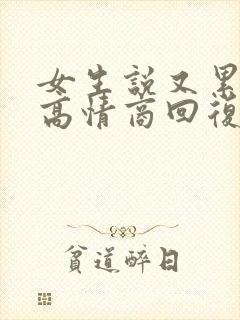 女生說又累
高情商回復
貧道醉日